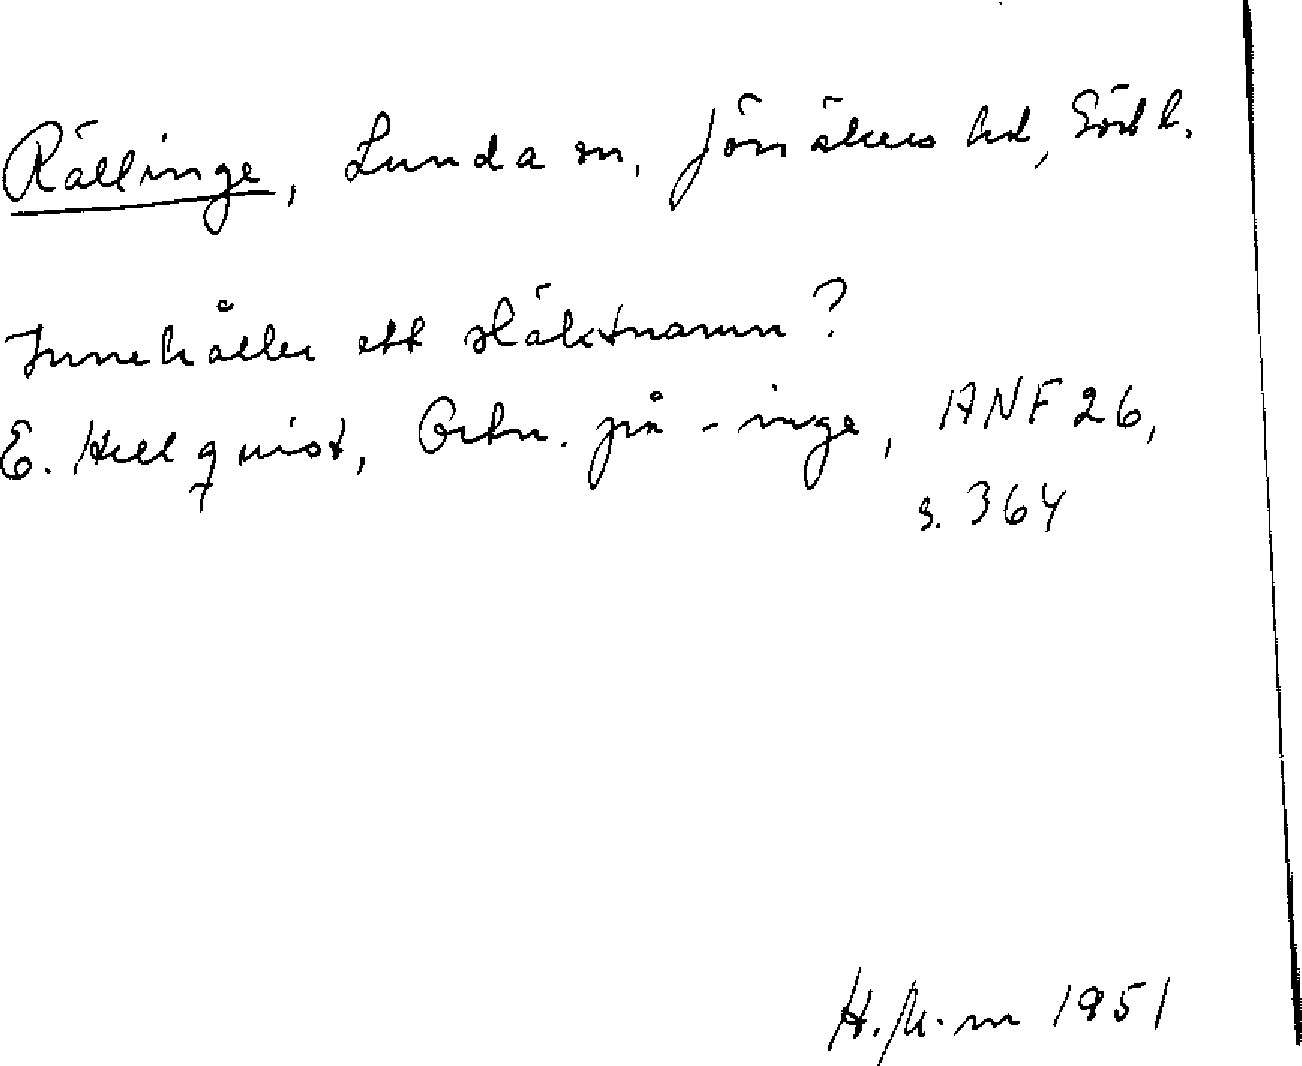 Rällinge, Lunda sn, Jönåkers hd, Södl.
Innehåller ett släktnamn?
E. Hellquist, Ortn. på -inge, ANF 26,
s. 364
1951